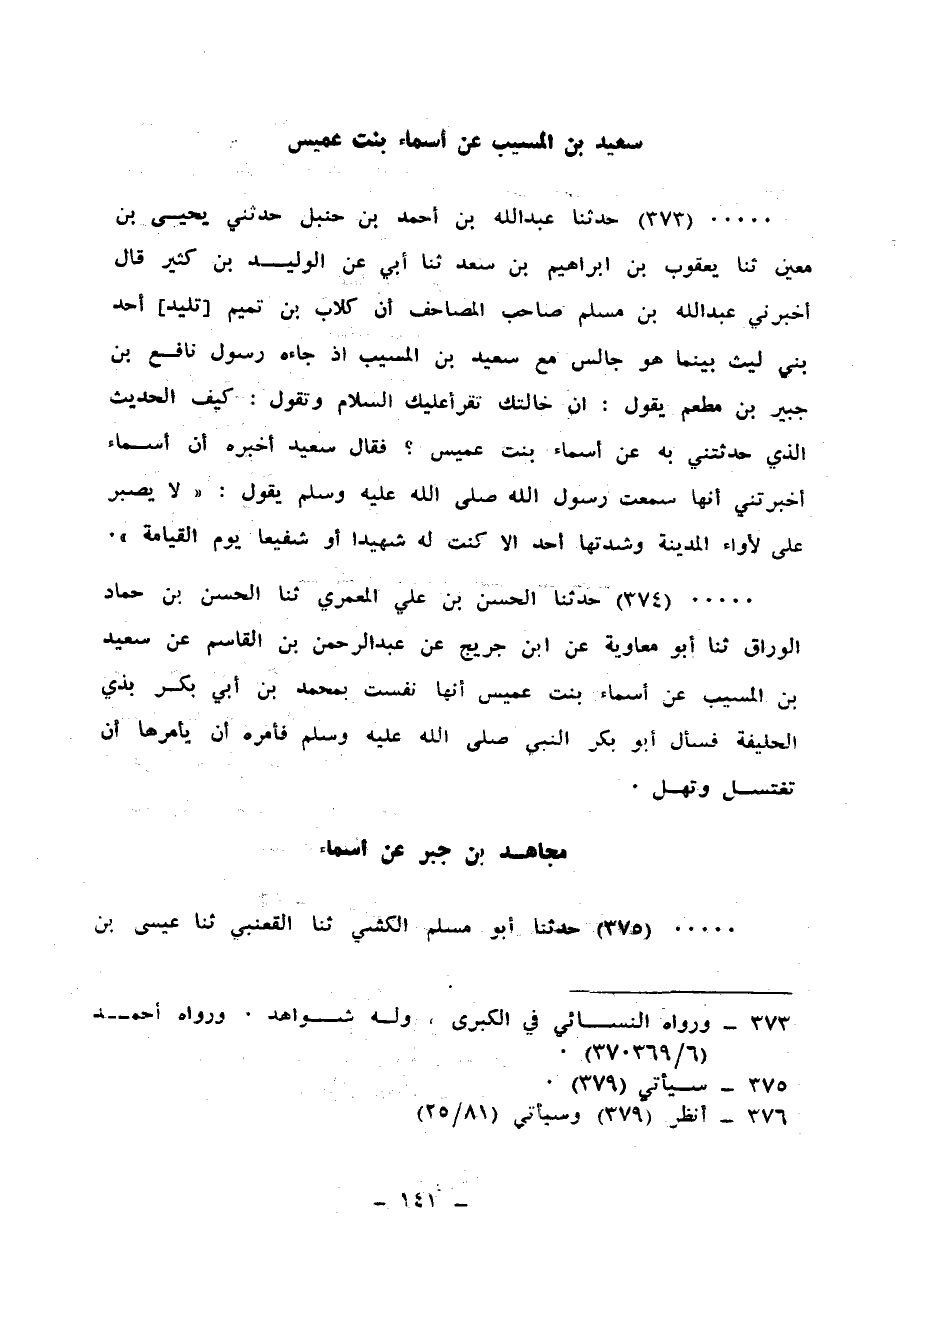 سعيد بن المسيب عن أسماء بنت عميس
٠٠٠٠٠ (٣٧٣) حدثنا عبدالله بن أحمد بن حنبل حدثني يحيـى بن
معين ثنا يعقوب بن ابراهيم بن سعد ثنا أبي عن الوليـــد بن كثير قال
أخبرني عبدالله بن مسلم صاحب المصاحف أن كلاب بن تميم [تليد] أحد
بني ليث بينما هو جالس مع سعيد بن المسيب اذ جاءه رسول نافـع بن
جبير بن مطعم يقول : ان خالتك تقرأعليك السلام وتقول : كيف الحديث
الذي حدثتني به عن أسماء بنت عميس ؟ فقال سعيد أخبره أن أســماء
أخبرتني أنها سمعت رسول الله صلى الله عليه وسلم يقول : « لا يصبر
على لأواء المدينة وشدتها أحد الا كنت له شهيدا أو شفيعا يوم القيامة »٠
٠٠٠٠٠ (٣٧٤) حدثنا الحسن بن علي المعمري ثنا الحسن بن حماد
الوراق ثنا أبو معاوية عن ابن جريج عن عبدالرحمن بن القاسم عن سعيد
بن المسيب عن أسماء بنت عميس أنها نفست بمحمد بن أبي بكـر بذي
الحليفة فسأل أبو بكر النبي صلى الله عليه وسلم فأمره أن يأمرها أن
تغتســل وتهـل ٠
مجاهـد بن جبر عن أسماء
٠٠٠٠٠ (٣٧٥) حدثنا أبو مسلم الكشي ثنا القعنبي ثنا عيسى بن
٣٧٣ ـ ورواه النســـائي في الكبرى ، ولـه شـــواهد ٠ ورواه أحمـــد
(٣٧٠٣٦٩/٦) ٠
٣٧٥ ـ ســيأتي (٣٧٩) ٠
٣٧٦ ـ أنظر (٣٧٩) وسيأتي (٢٥/٨١)
ـ ١٤١ ـ